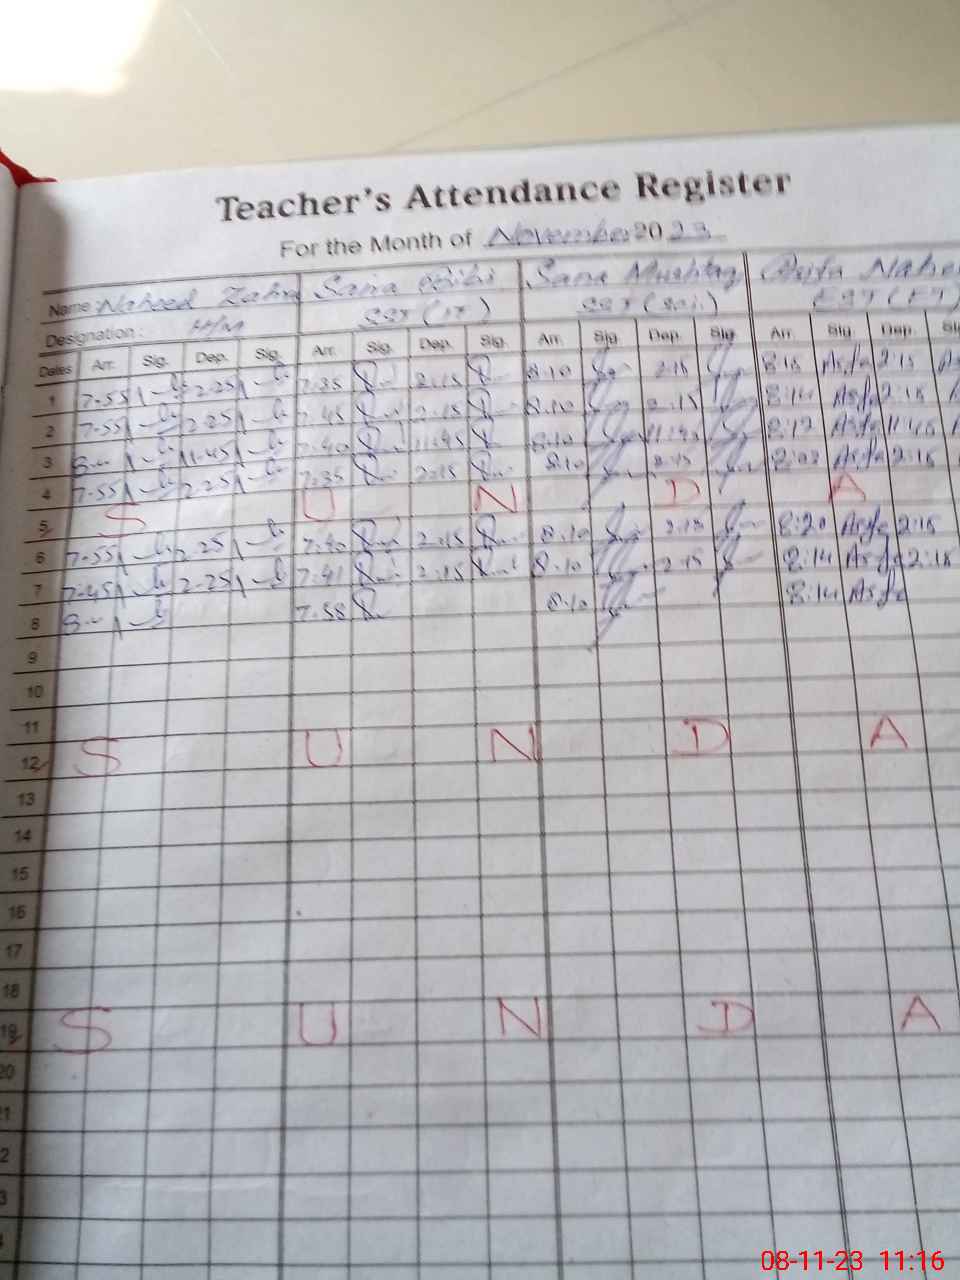 Teacher's Attendance Register
For the Month of November 2023
Name Naheed Zahra Sana Bibi Sana Mushtaq Asifa
Designation: H/M SST (IT) SST (Sci.) EST (
Dates Arr. Sig. Dep. Sig. Arr. Sig. Dep. Sig. Arr. Sig. Dep. Sig. Arr. Sig. Dep.
1 7-55 2-25 7.35 2.15 8.10 2.15 8:15 Asifa 2:15
2 7-55 2-25 7.45 2.15 8.10 2.15 8:14 Asifa 2:15
3 8- 11.45 7.40 11.45 8.10 11.45 8:12 Asifa
4 7-55 2-25 7.35 2.15 8.10 2.15 Asifa 2:15
5 S U N D A
6 7-55 2.25 7.40 2.15 8.10 2.15 8:20 Asifa 2:15
7 7-45 2-25 7.41 2.15 8.10 2.15 8:14 Asifa 2:15
8 8- 7.58 8.10 8:14 Asifa
9
10
11
12 S U N D A
13
14
15
16
17
18
19 S U N D A
20
08-11-23 11:16